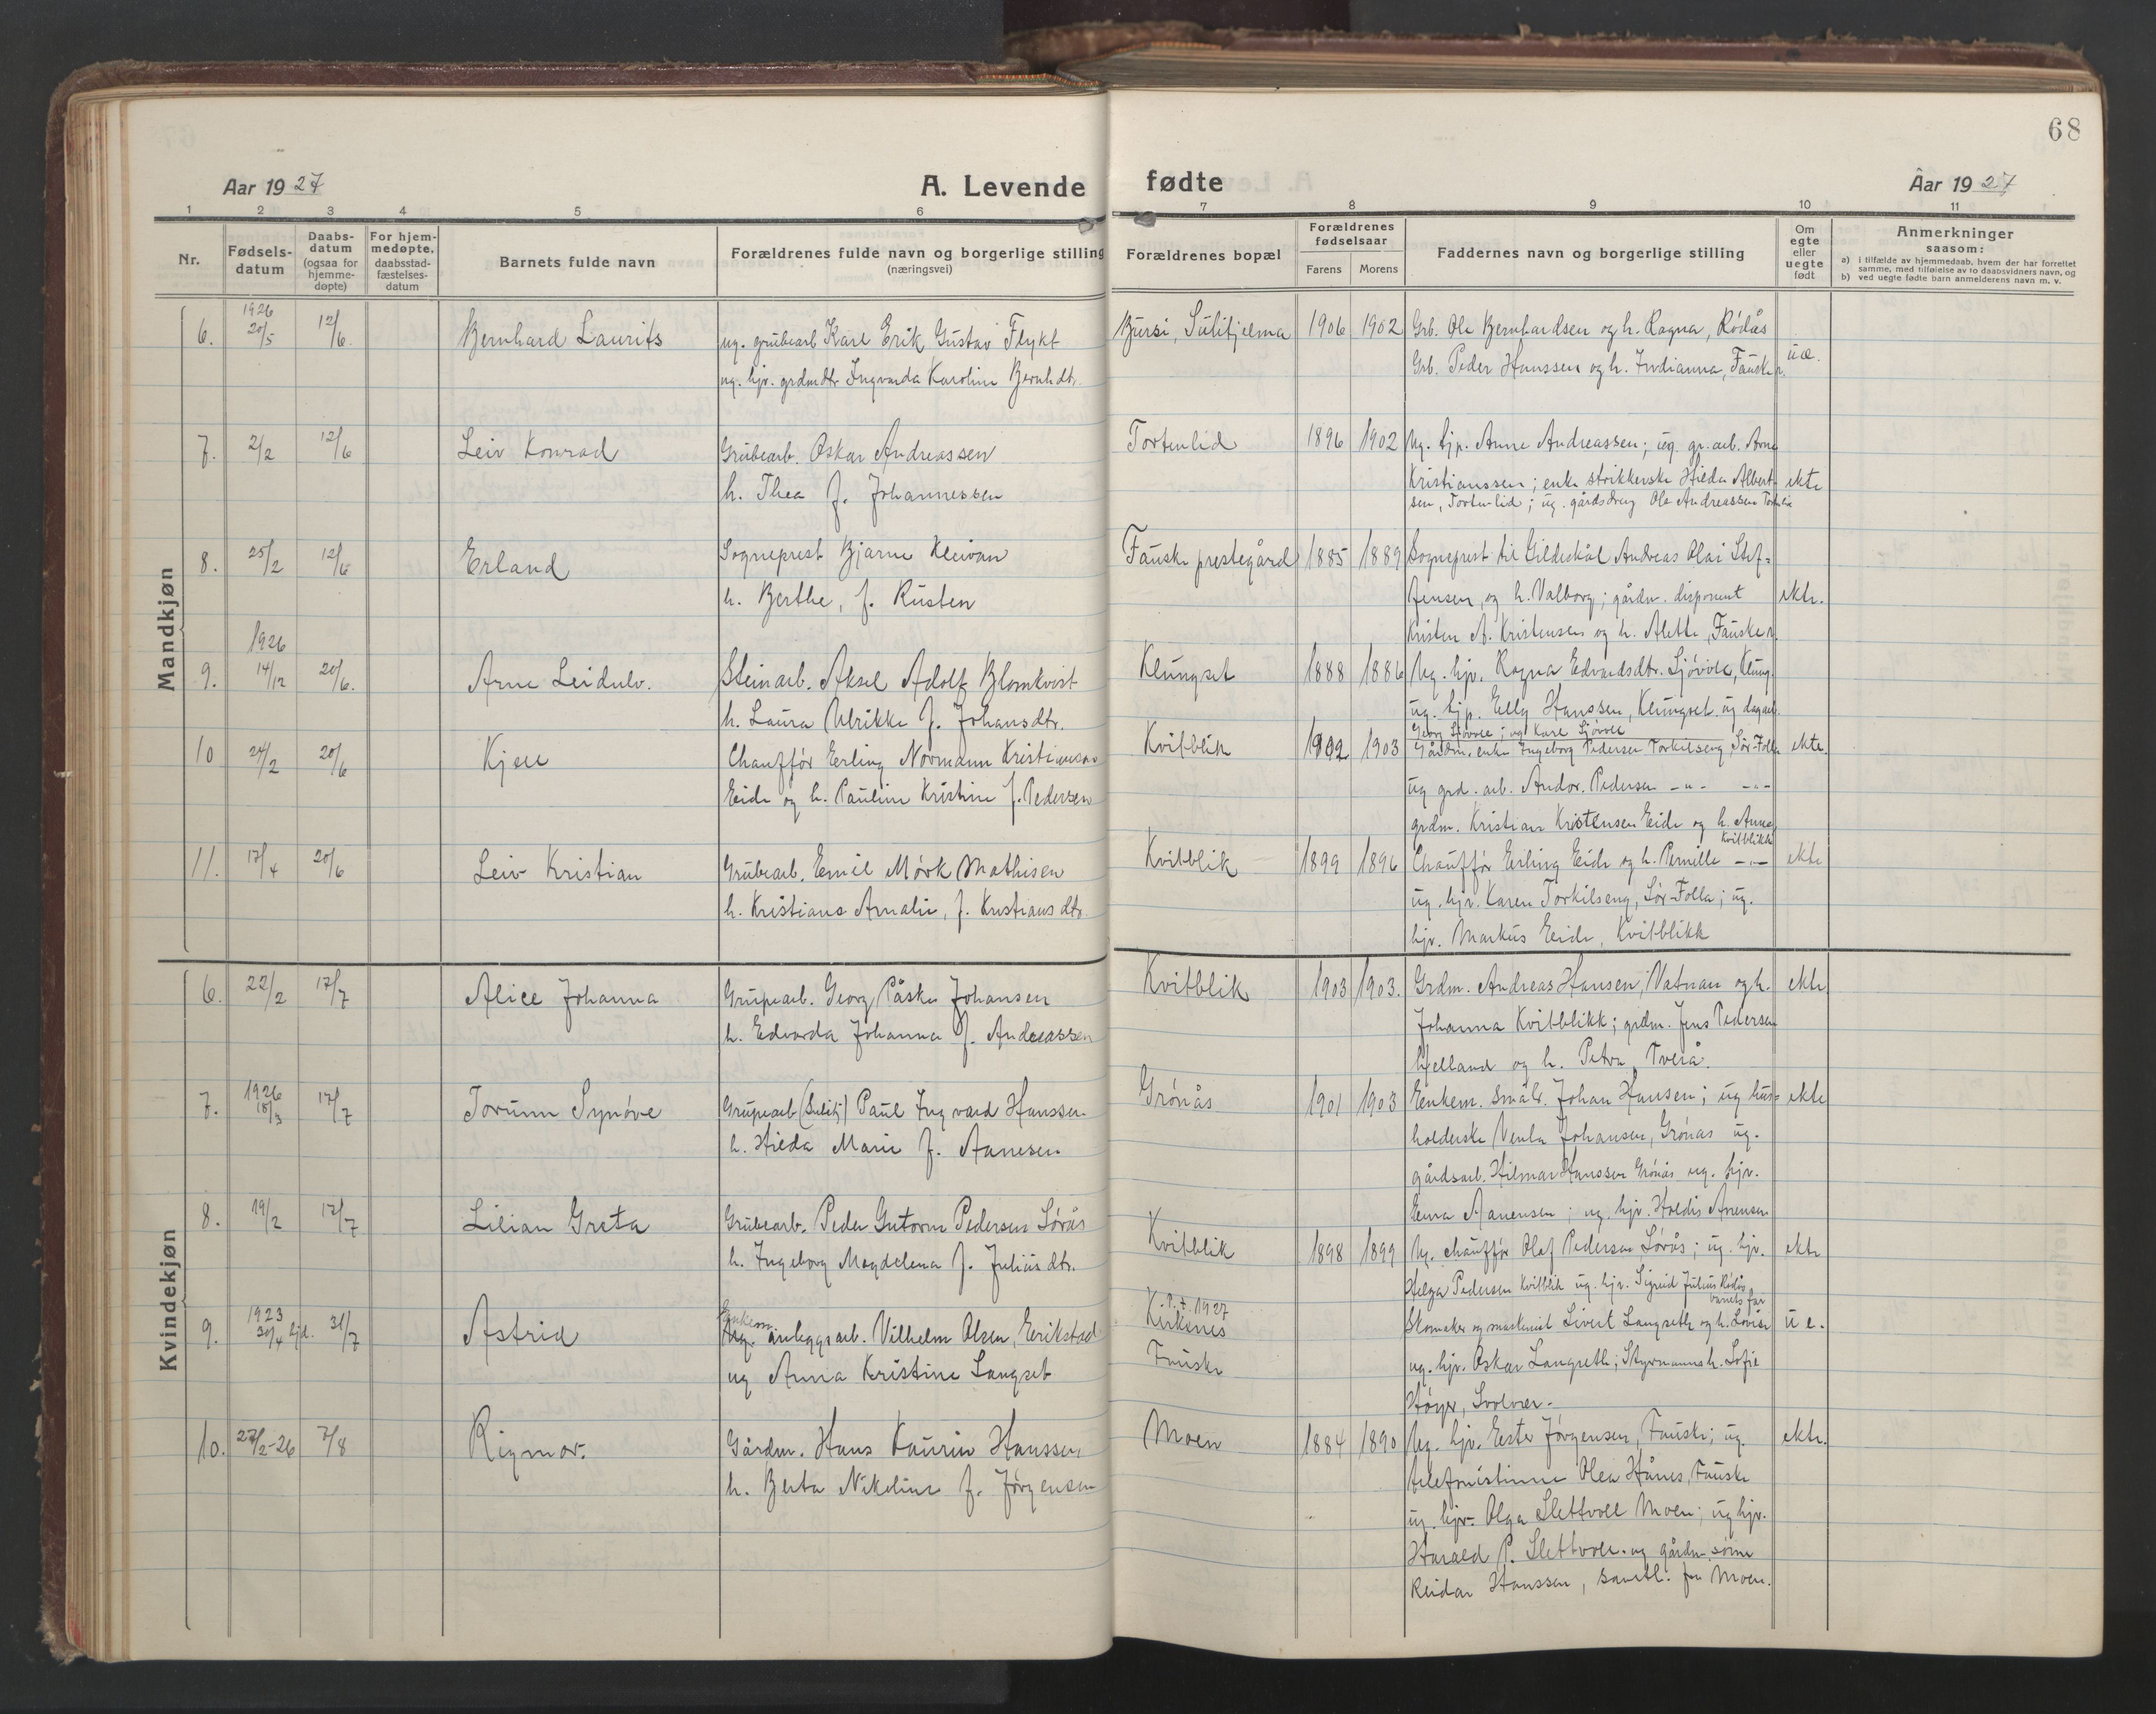 68
Aar 1927
A. Levende
fødte
Aar 1927
1 2 3 4 5 6 7 8 9 10 11
Nr.
Fødsels-
datum
Daabs-
datum
(ogsaa for
hjemme-
døpte)
For hjem-
medøpte,
daabsstad-
fæstelses-
datum
Barnets fulde navn
Forældrenes fulde navn og borgerlige stilling
(næringsvei)
Forældrenes bopæl
Forældrenes
fødselsaar
Farens Morens
Faddernes navn og borgerlige stilling
Om
egte
eller
uegte
født
Anmerkninger
saasom:
a) i tilfælde av hjemmedaab, hvem der har forrettet
samme, med tilføielse av to daabsvidners navn, og
b) ved uegte fødte barn anmelderens navn m. v.
Mandkjøn
6. 1926 20/5 12/6. Bernhard Laurits
ug. grubearb Karl Erik Gustav Flykt
ug. hjv. grdmdtr Ingvarda Karoline Bernhdtr.
Bursi, Sulitjelma 1906 1902
Grb. Ole Bernhardsen og h. Ragna, Rödås
Grb. Peder Hanssen og h. Indianna, Fauske
u.e.
7. 2/2 12/6 Leiv Konrad
Grubearb. Oskar Andreassen
h. Thea f. Johannessen
Tortenlid 1896 1902
Ug. tjp. Anne Andreassen; ug. gr.arb. Arne
Kristianssen; enke strikkerske Hilda Albert-
sen, Tortenlid; ug. gårdsdreng Ole Andreassen Tortenlid
ekte
8. 25/2 12/6 Erland
Sogneprest Bjarne Kleivan
h. Berthe, f. Rusten
Fauske prestegård 1885 1889
Sogneprest til Gildeskål Andreas Olai Stef-
fensen, og h. Valborg; gårdm. disponent
Kristen A. Kristensen og h. Alette, Fauske
ekte.
9. 1926 14/12 20/6. Arne Leidulv.
Steinarb. Aksel Adolf Blomkvist
h. Laura Ulrikke f. Johansdtr.
Klungset 1888 1886
Ug. hjv. Ragna Edvardsdtr. Sjövoll, Klung.
ug. hjp. Elly Hanssen, Klungset. ug dagarb.
Georg Sjövoll; ug Karl Sjövoll
10 24/2 20/6 Kjell
Chaufför Erling Normann Kristiansen
Eide og h. Pauline Kristine f. Pedersen
Kvitblik 1902 1903
Gårdm. enke Ingeborg Pedersen Torkilseng, Sör-Folla
ug grd. arb. Andor. Pedersen -"- -"-
grdm. Kristian Kristensen Eide og h. Anna
Kvitblikk
ekte.
11. 17/4 20/6 Leiv Kristian
Grubearb. Emil Mörk Mathisen
h. Kristiane Amalie, f. Kristiansdtr.
Kvitblik 1899 1896
Chaufför Erling Eide og h. Pernille -"-
ug. hjv. Karen Torkilseng, Sör-Folla; ug.
hjv. Markus Eide, Kvitblikk
ekte
Kvindekjøn
6. 22/2 17/7 Alice Johanna
Grupearb. Georg Påske Johansen
h. Edvarda Johanna f. Andreassen
Kvitblik 1903 1903.
Grdm. Andreas Hansen, Vatnan og h.
Johanna Kvitblikk; grdm. Jens Pedersen
Hjelland og h. Petra, Tverå.
ekte
7. 1926 18/3 17/7 Torunn Synöve
Grupearb (Sulitj) Paul Ingvard Hanssen
h. Hilda Marie f. Aanesen
Grönås 1901 1903
Enkem. småbr. Johan Hansen; ug hus-
holderske Venla Johansen, Grönås ug.
gårdsarb. Hilmar Hanssen Grönås ug. hjv.
Erna Aanensen; ug. hjv. Hordis Anensen
ekte
8. 19/2 17/7 Lilian Greta
Grubearb. Peder Gutorm Pedersen Lörås
h. Ingeborg Magdelena f. Juliusdtr.
Kvitblik 1898 1899
Ug. chaufför Olaf Pedersen Lörås; ug. hjv.
Helga Pedersen Kvitblik ug. hjv. Sigrid Julius Rödås
ekte
9. 1923 30/4 hjd. 31/7 Astrid
Enkem.
Ug. anleggsarb. Vilhelm Olsen, Eerikstad
ug Anna Kristine Langset
p.t. 1927
Kirkenes
Fauske
barnets far
Skomaker og maskinist Sivert Langseth og h. Lovise
ug. hjv. Oskar Langseth; Styrmannsh. Sofie
Höyer, Svolvær.
u e.
10. 27/2-26 7/8 Rigmor.
Gårdm. Hans Kaurin Hanssen
h. Berta Nikoline f. Jörgensen
Moen 1884 1890
Ug. hjv. Ester Jörgensen, Fauske; ug.
telefonistinne Olea Hånes, Fauske
ug. hjv. Olga Slettvoll Moen; ug hjv.
Harald P. Slettvoll og gårdm.sönn
Reidar Hanssen, samtl. fra Moen.
ekte.